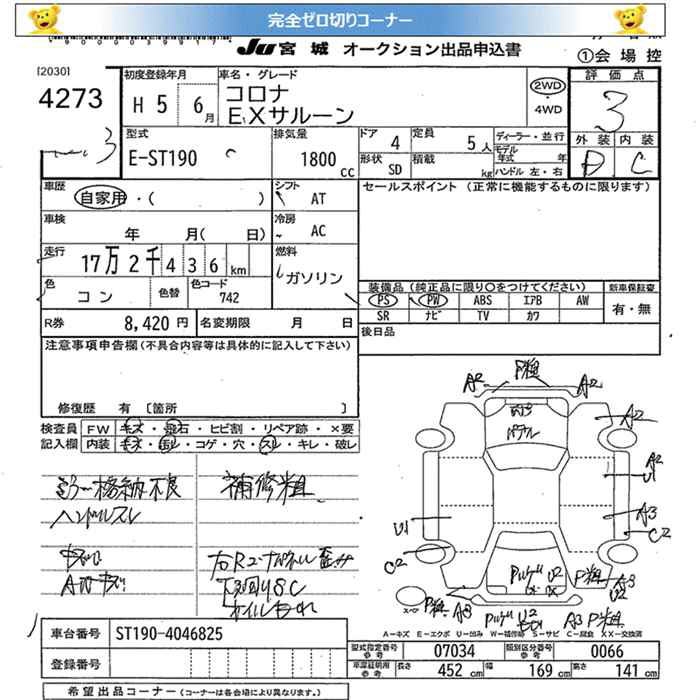 完全ゼロ切りコーナー
JU 宮城 オークション出品申込書
①会場控
[2030]
4273
初度登録年月
H 5 6月
車名・グレード
コロナ
EXサルーン
2WD
・4WD
評価点
3
外装 内装
D C
3
型式
E-ST190
排気量
1800 CC
ドア 4
形状 SD
定員 5人
積載 kg
ディーラー・並行
モデル年式 年
ハンドル 左・右
車歴
自家用・( )
シフト
AT
セールスポイント(正常に機能するものに限ります)
車検
年 月( 日)
冷房
AC
走行
17万2千436km
燃料
ガソリン
色
コン
色替
色コード
742
装備品(純正品に限り〇をつけてください)
新車保証書
PS PW ABS エアB AW
SR ナビ TV カワ
有・無
R券 8,420円
名変期限 月 日
後日品
注意事項申告欄(不具合内容等は具体的に記入して下さい)
修復歴 有 〔箇所 〕
検査員 FW キズ・飛石・ヒビ割・リペア跡・×要
記入欄 内装 キズ・汚レ・コゲ・穴・スレ・キレ・破レ
ミラー格納不良
補修粗
ハンドルスレ
下廻りSC
A2 P粗 A2
A2
A2
U1
U1
A3
C2
C2
P粗 A3
U2
P粗 A3
U2
A3 P粗
スペア
車台番号 ST190-4046825
登録番号
A―キズ E―エクボ U―凹み W―補修跡 S―サビ C―腐食 XX―交換済
型式指定番号 参考 07034
類別区分番号 参考 0066
車庫証明用 参考 長さ 452 cm 幅 169 cm 高さ 141 cm
希望出品コーナー(コーナーは各会場により異なります。)